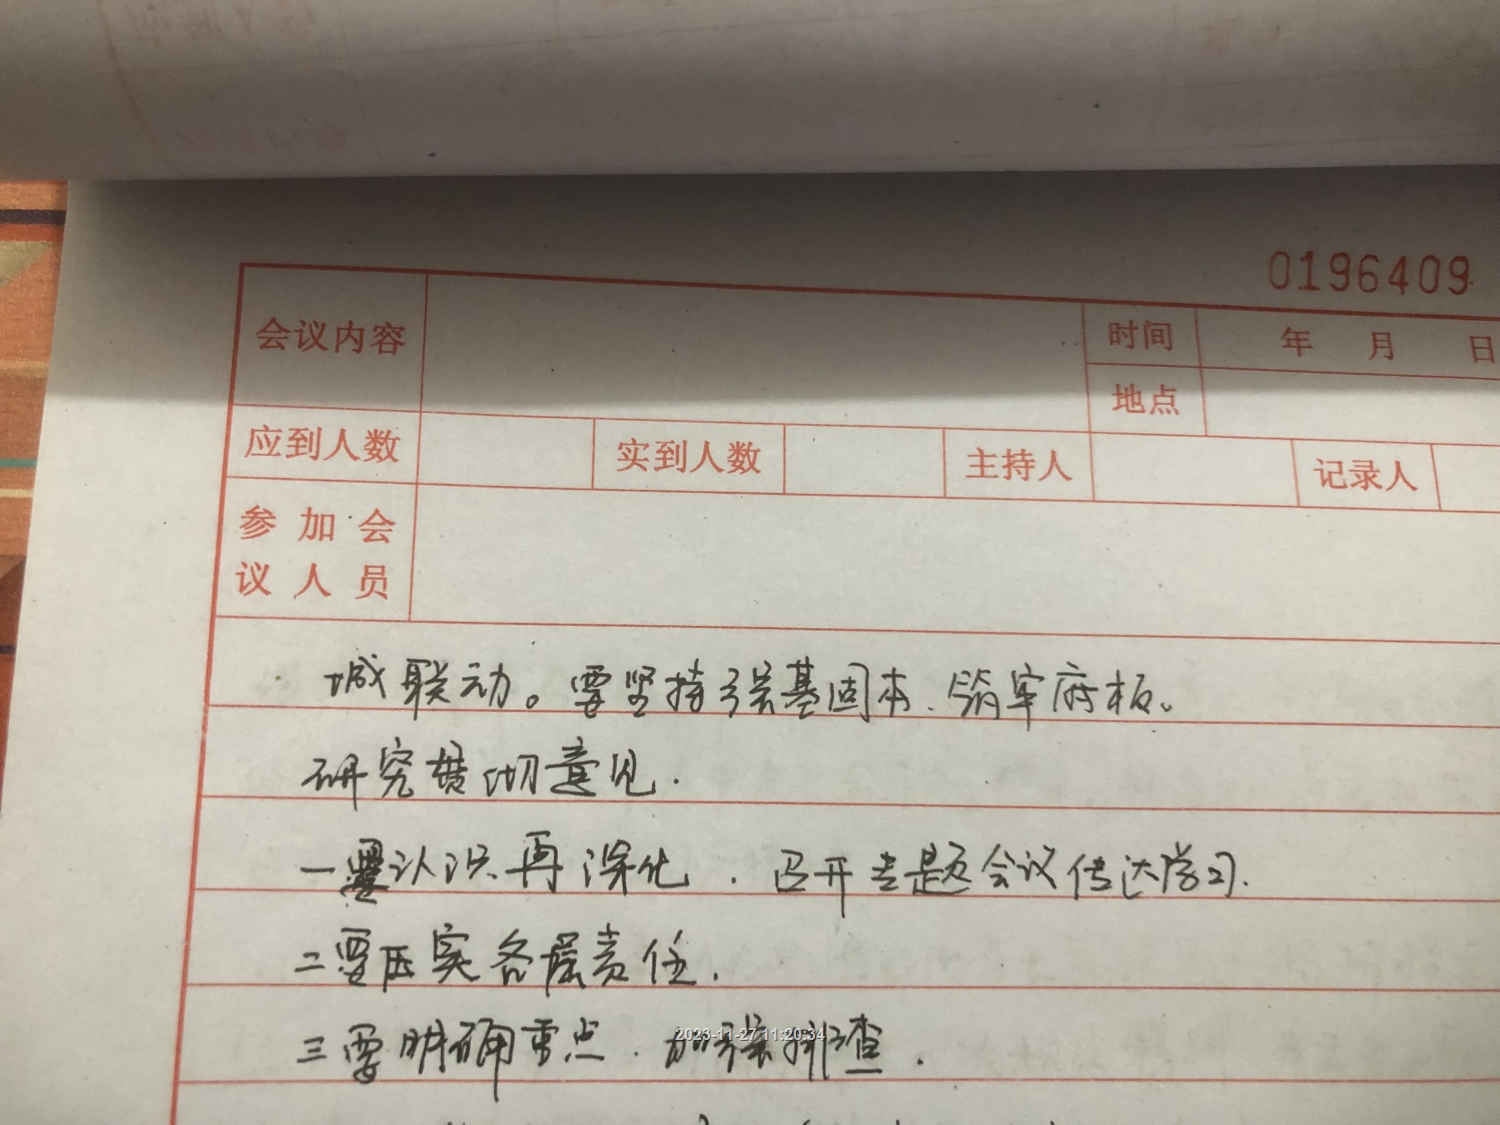 0196409
会议内容 时间 年 月 日
地点
应到人数 实到人数 主持人 记录人
参加会
议人员
城联动。要坚持强基固本、筑牢底板。
研究贯彻意见.
一要认识再深化.召开专题会议传达学习.
二要压实各层责任.
三要明确重点.加强排查.
2023-11-27 11:20:34